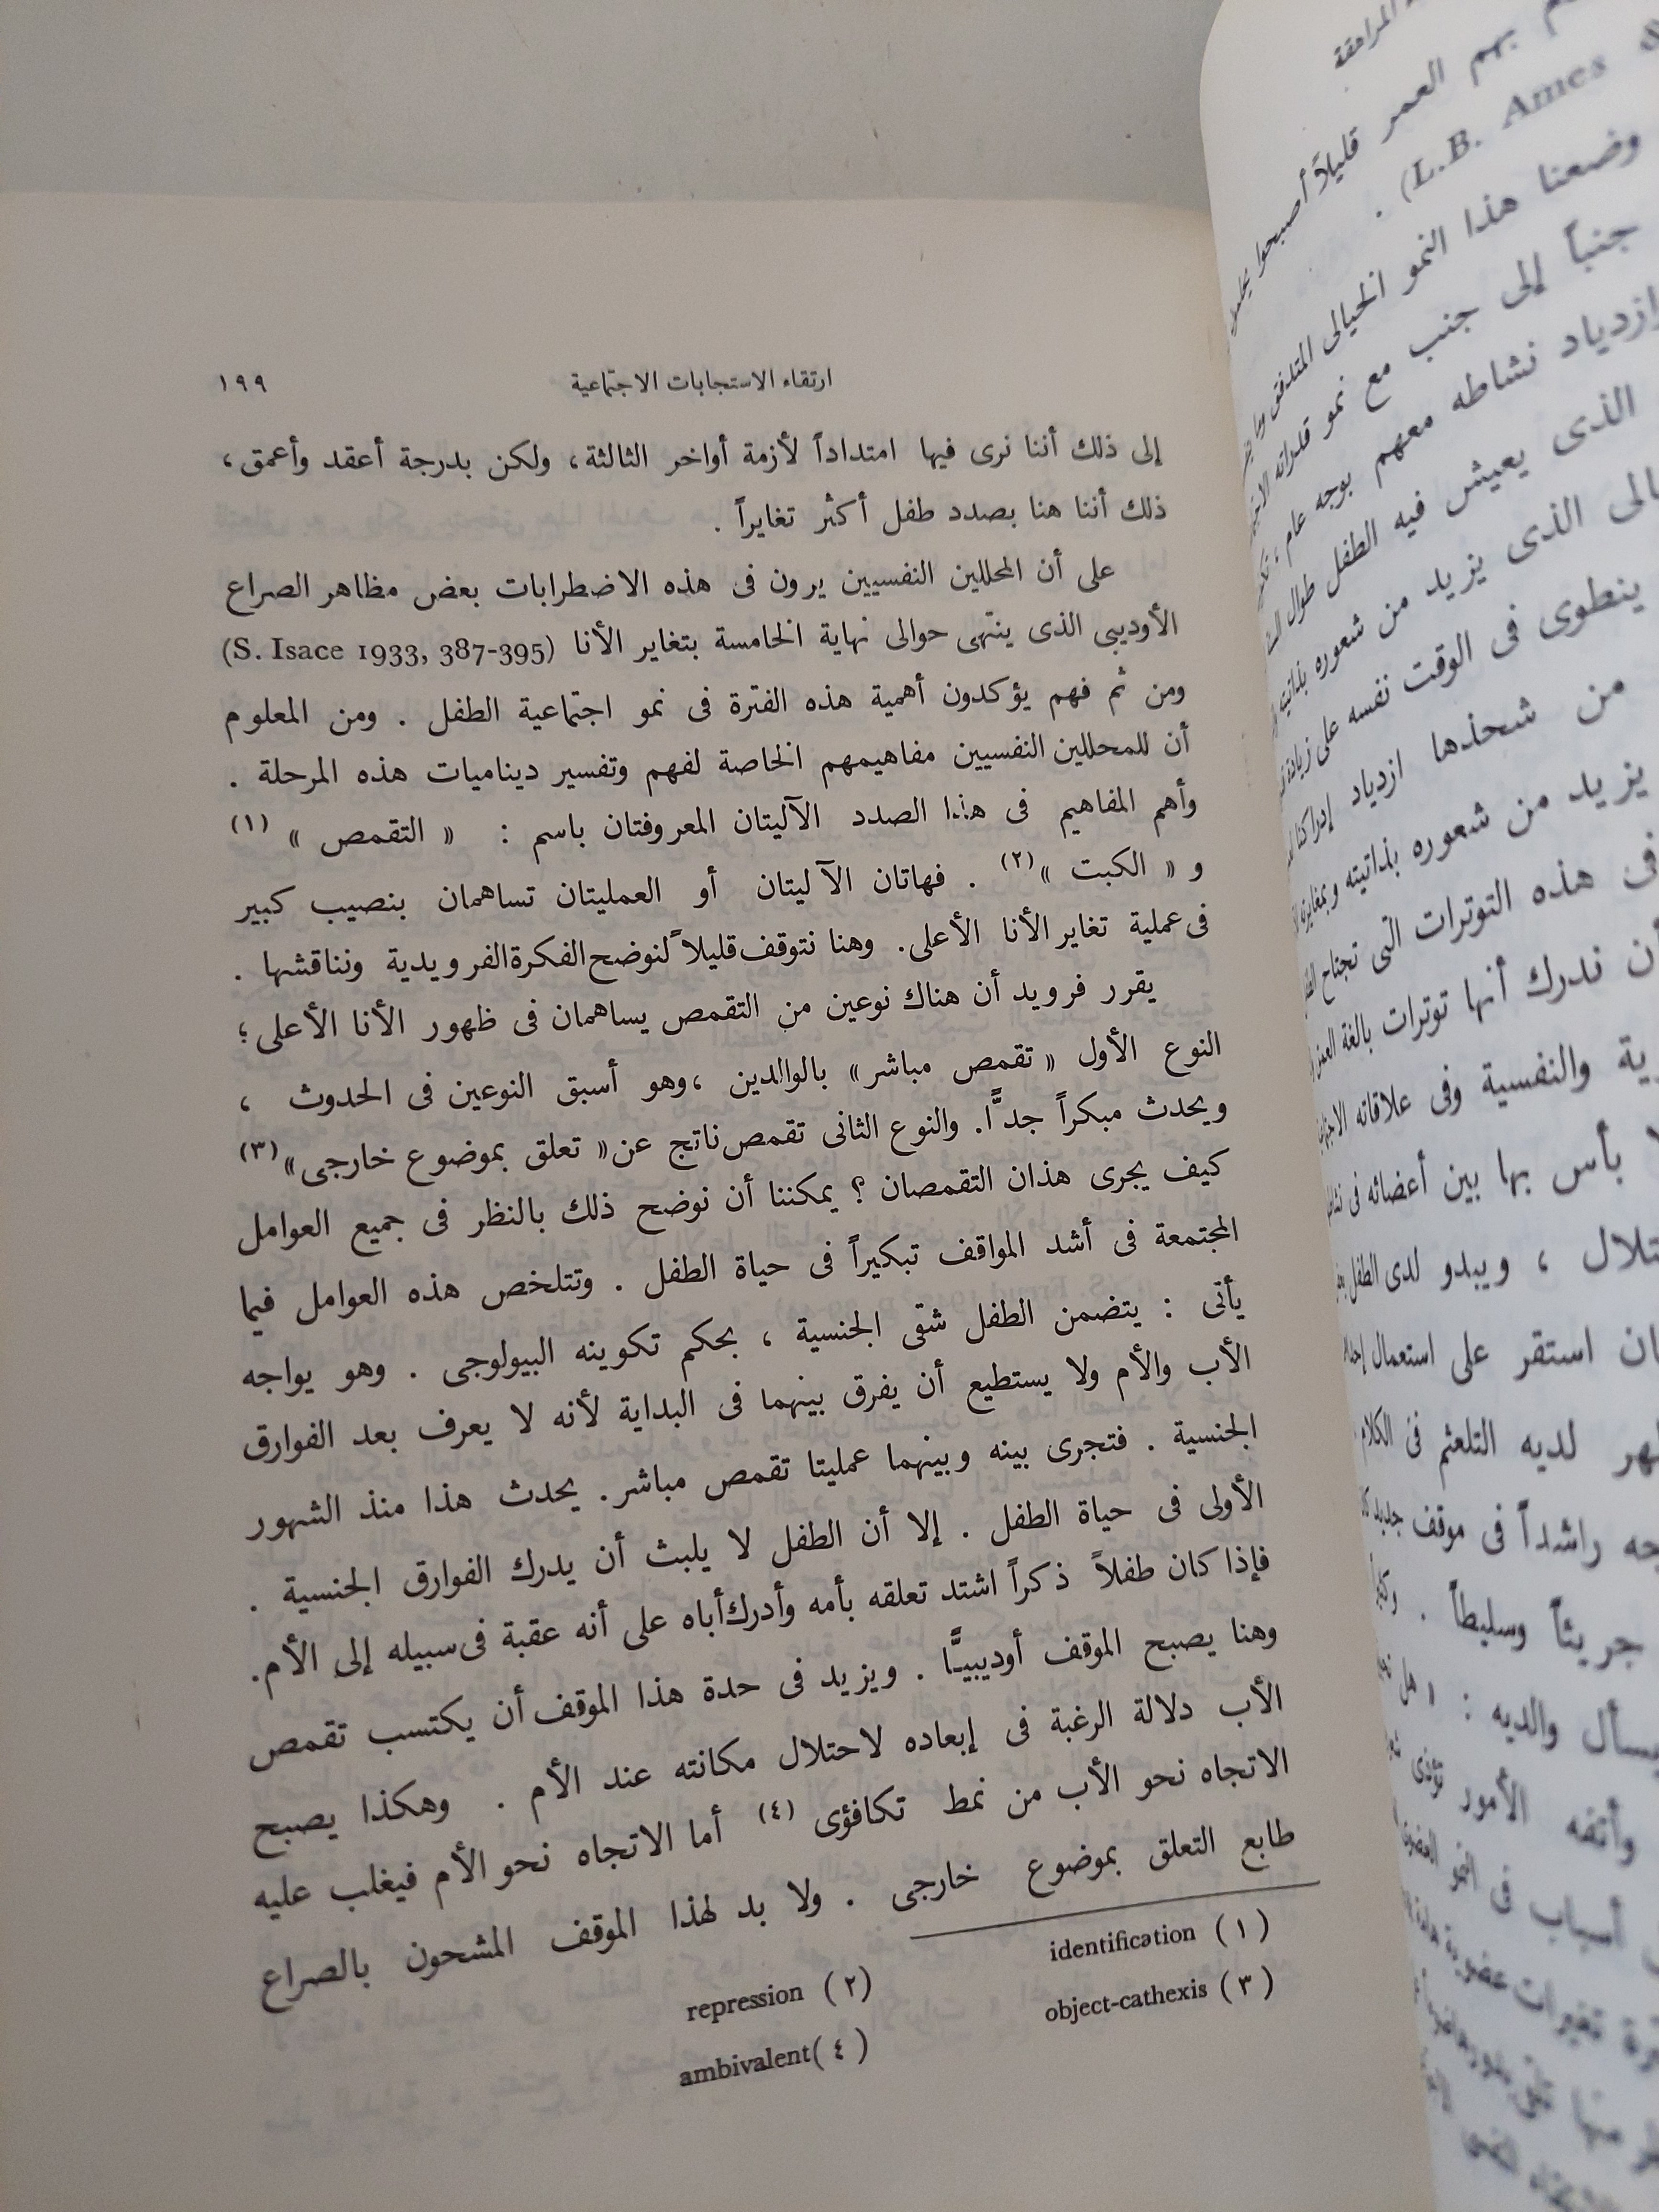 ارتقاء الاستجابات الاجتماعية ١٩٩
إلى ذلك أننا نرى فيها امتداداً لأزمة أواخر الثالثة، ولكن بدرجة أعقد وأعمق،
ذلك أننا هنا بصدد طفل أكثر تغايراً .
على أن المحللين النفسيين يرون فى هذه الاضطرابات بعض مظاهر الصراع
الأوديبى الذى ينتهى حوالى نهاية الخامسة بتغاير الأنا (S. Isace 1933, 387-395)
ومن ثم فهم يؤكدون أهمية هذه الفترة فى نمو اجتماعية الطفل . ومن المعلوم
أن للمحللين النفسيين مفاهيمهم الخاصة لفهم وتفسير ديناميات هذه المرحلة .
وأهم المفاهيم فى هذا الصدد الآليتان المعروفتان باسم : « التقمص » (١)
و « الكبت »(٢) . فهاتان الآليتان أو العمليتان تساهمان بنصيب كبير
فى عملية تغاير الأنا الأعلى. وهنا نتوقف قليلاً لنوضح الفكرة الفرويدية ونناقشها .
يقرر فرويد أن هناك نوعين من التقمص يساهمان فى ظهور الأنا الأعلى؛
النوع الأول « تقمص مباشر» بالوالدين ،وهو أسبق النوعين فى الحدوث ،
ويحدث مبكراً جدًّا. والنوع الثانى تقمص ناتج عن« تعلق بموضوع خارجى»(٣)
كيف يجرى هذان التقمصان ؟ يمكننا أن نوضح ذلك بالنظر فى جميع العوامل
المجتمعة فى أشد المواقف تبكيراً فى حياة الطفل . وتتلخص هذه العوامل فيما
يأتى : يتضمن الطفل شقى الجنسية ، بحكم تكوينه البيولوجى . وهو يواجه
الأب والأم ولا يستطيع أن يفرق بينهما فى البداية لأنه لا يعرف بعد الفوارق
الجنسية . فتجرى بينه وبينهما عمليتا تقمص مباشر. يحدث هذا منذ الشهور
الأولى فى حياة الطفل . إلا أن الطفل لا يلبث أن يدرك الفوارق الجنسية .
فإذا كان طفلاً ذكراً اشتد تعلقه بأمه وأدرك أباه على أنه عقبة فى سبيله إلى الأم.
وهنا يصبح الموقف أوديبيًّا . ويزيد فى حدة هذا الموقف أن يكتسب تقمص
الأب دلالة الرغبة فى إبعاده لاحتلال مكانته عند الأم . وهكذا يصبح
الاتجاه نحو الأب من نمط تكافؤى (٤) أما الاتجاه نحو الأم فيغلب عليه
طابع التعلق بموضوع خارجى . ولا بد لهذا الموقف المشحون بالصراع
(١) identification
(٢) repression
(٣) object-cathexis
(٤) ambivalent
المراهقة
بهم العمر قليلاً أصبحوا
(L.B. Ames .
وضعنا هذا النمو الخيالى المتدفق
جنباً إلى جنب مع نمو قدراته
ازدياد نشاطه معهم بوجه عام
الذى يعيش فيه الطفل طوال
الذى يزيد من شعوره بذاتيته
ينطوى فى الوقت نفسه على زيادة
من شحذها ازدياد إدراكنا
يزيد من شعوره بذاتيته وبمغايرته
هذه التوترات التى تجتاح
ندرك أنها توترات بالغة العنف
والنفسية وفى علاقاته
بأس بها بين أعضائه فى
، ويبدو لدى الطفل
استقر على استعمال
لديه التلعثم فى الكلام
راشداً فى موقف جديد
جريئاً وسليطاً .
يسأل والديه : « هل
وأتفه الأمور تؤذى
أسباب فى النمو العضوى
تغيرات عضوية